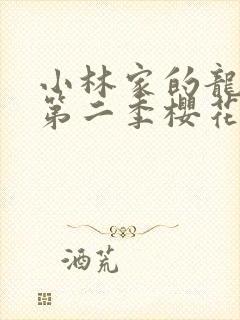 小林家的龍
第二季櫻花
酒荒